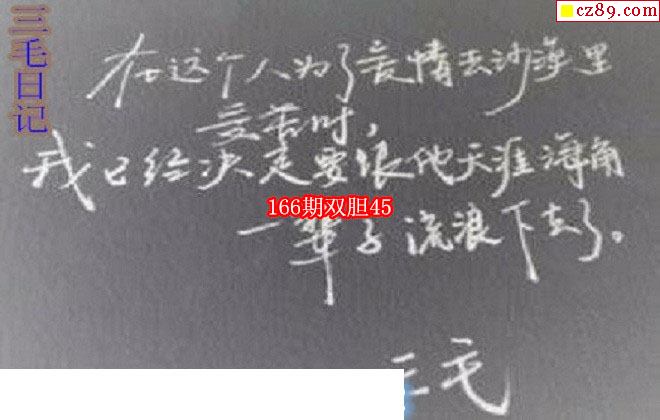 cz89.com
三毛日记
在这个人为了爱情去沙漠里
受苦时，
我已经决定要跟他天涯海角
166期双胆45
一辈子流浪下去了。
三毛